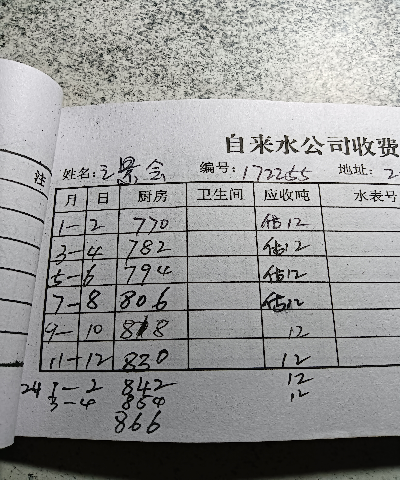 自来水公司收费
注 姓名: 王景会 编号: 172255 地址: 2-
月 日 厨房 卫生间 应收吨 水表号
1-2 770 估12
3-4 782 估12
5-6 794 估12
7-8 806 估12
9-10 818 12
11-12 830 12
24 1-2 842 12
3-4 854 12
866